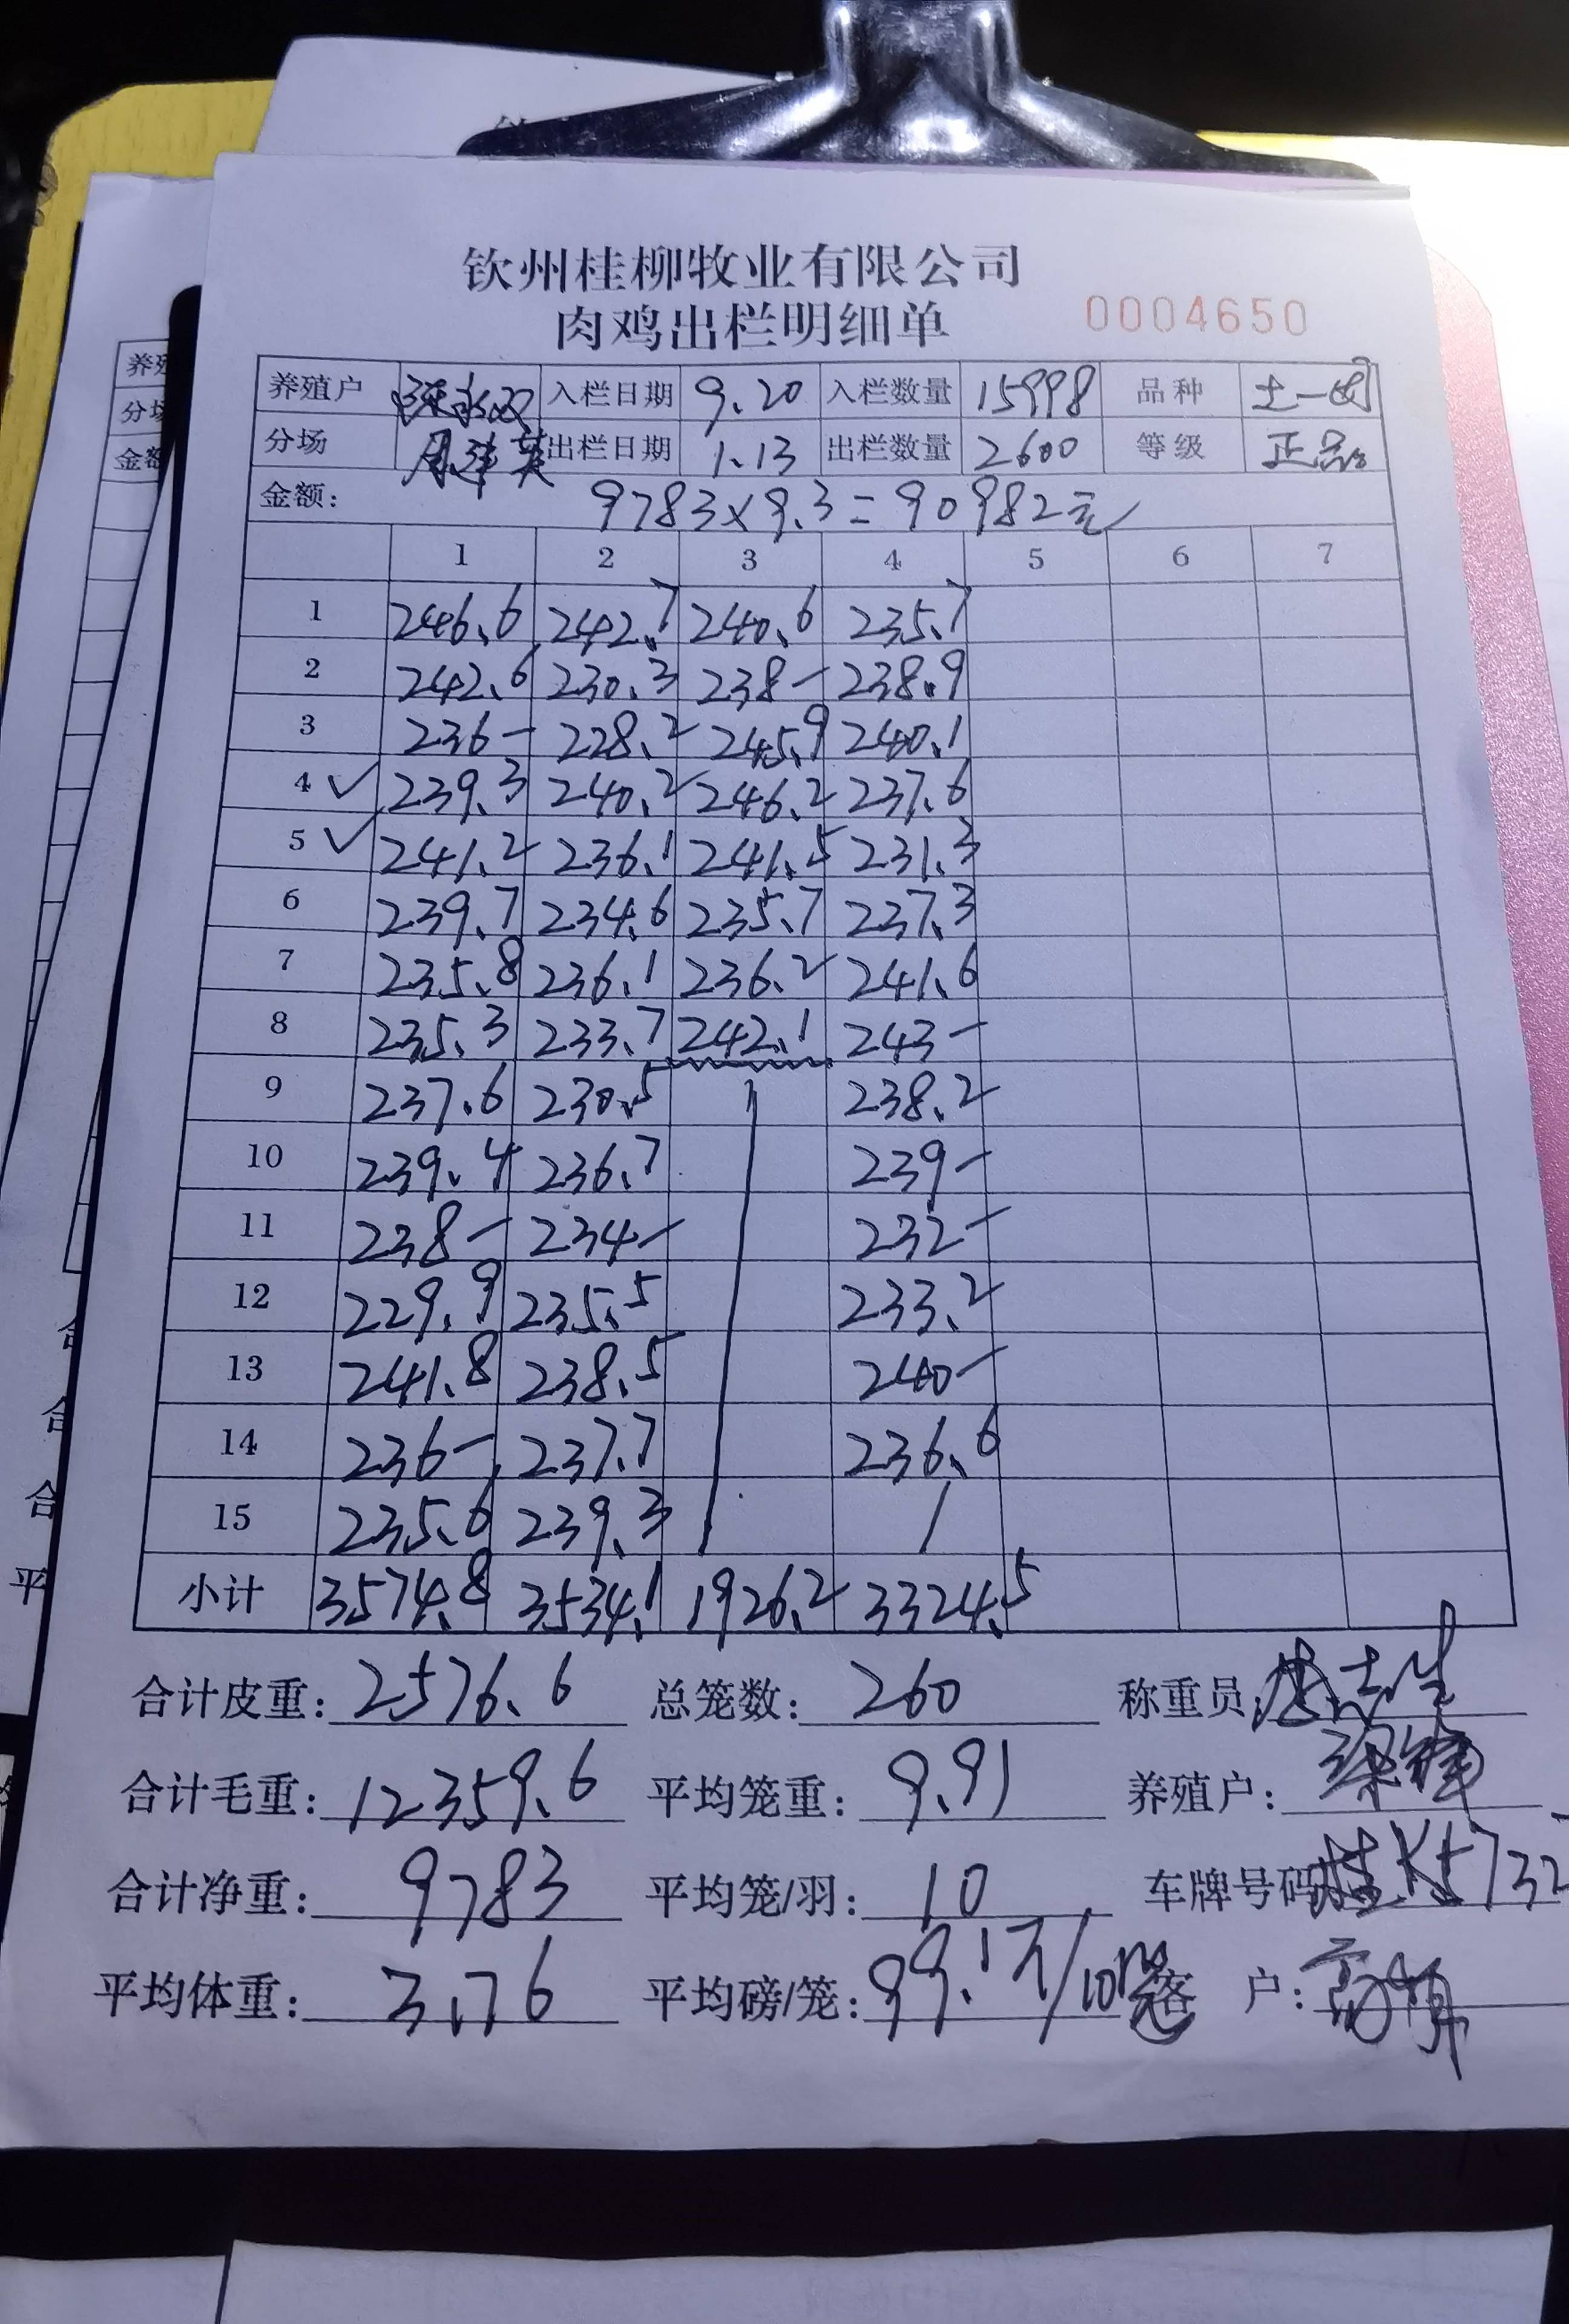 钦州桂柳牧业有限公司
肉鸡出栏明细单 0004650
养殖户 入栏日期 9.20 入栏数量 15998 品种 土一
分场 出栏日期 1.13 出栏数量 2600 等级 正品
金额: 9783×9.3=90982元
1 2 3 4 5 6 7
1 246.6 242.7 240.6 235.7
2 242.6 230.3 238- 238.9
3 236- 228.2 245.9 240.1
4 ✓ 239.3 240.2 246.2 237.6
5 ✓ 241.2 236.1 241.5 231.3
6 239.7 234.6 235.7 237.3
7 235.8 236.1 236.2 241.6
8 235.3 233.7 242.1 243-
9 237.6 230.5 238.2
10 239.4 236.7 239-
11 238- 234- 232-
12 229.9 235.5 233.2
13 241.8 238.5 240-
14 236- 237.7 236.6
15 235.6 239.3
小计 3574.8 3534.1 1926.2 3324.5
合计皮重: 2576.6 总笼数: 260 称重员:
合计毛重: 12359.6 平均笼重: 9.91 养殖户:
合计净重: 9783 平均笼/羽: 10 车牌号码 桂K
平均体重: 3.76 平均磅/笼: 99.1斤/10 客 户:
养殖
分场
金额
合
合
合
平